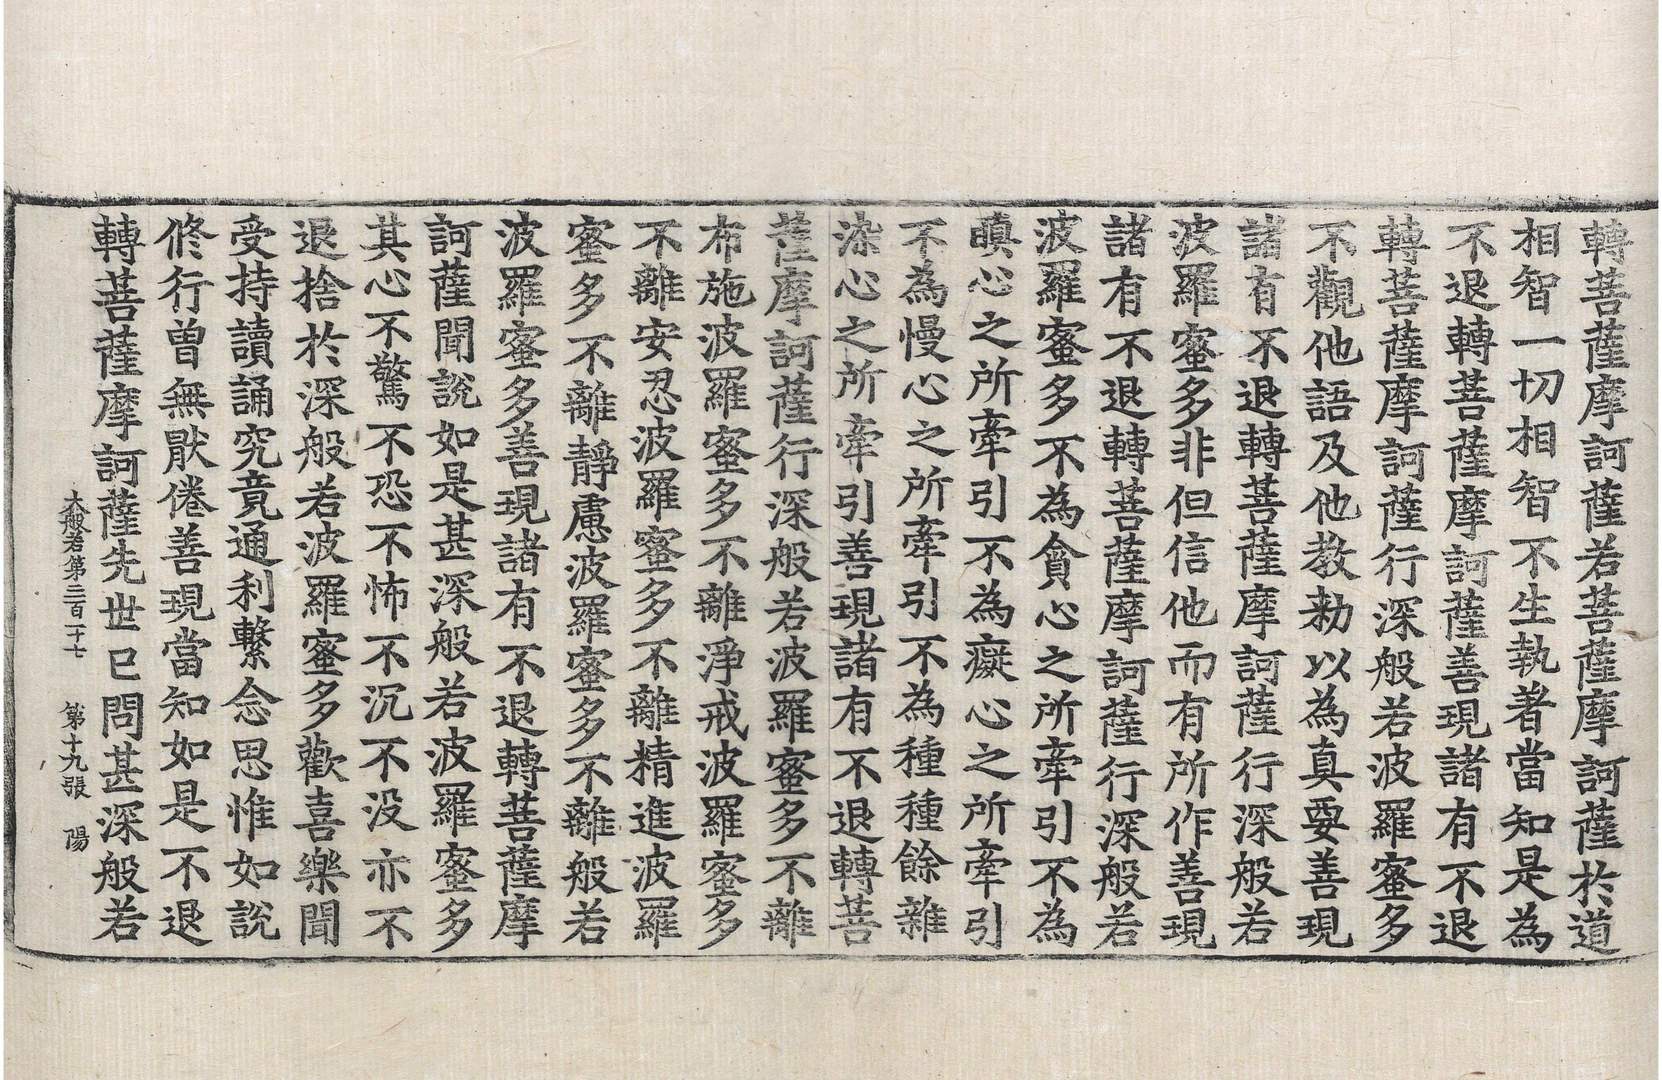 轉菩薩摩訶薩若菩薩摩訶薩於道
相智一切相智不生執著當知是為
不退轉菩薩摩訶薩善現諸有不退
轉菩薩摩訶薩行深般若波羅蜜多
不觀他語及他教勑以為真要善現
諸有不退轉菩薩摩訶薩行深般若
波羅蜜多非但信他而有所作善現
諸有不退轉菩薩摩訶薩行深般若
波羅蜜多不為貪心之所牽引不為
瞋心之所牽引不為癡心之所牽引
不為慢心之所牽引不為種種餘雜
染心之所牽引善現諸有不退轉菩
薩摩訶薩行深般若波羅蜜多不離
布施波羅蜜多不離淨戒波羅蜜多
不離安忍波羅蜜多不離精進波羅
蜜多不離靜慮波羅蜜多不離般若
波羅蜜多善現諸有不退轉菩薩摩
訶薩聞說如是甚深般若波羅蜜多
其心不驚不恐不怖不沉不沒亦不
退捨於深般若波羅蜜多歡喜樂聞
受持讀誦究竟通利繫念思惟如說
修行曾無厭倦善現當知如是不退
轉菩薩摩訶薩先世已問甚深般若
大般若第三百二十七 第十九張 陽